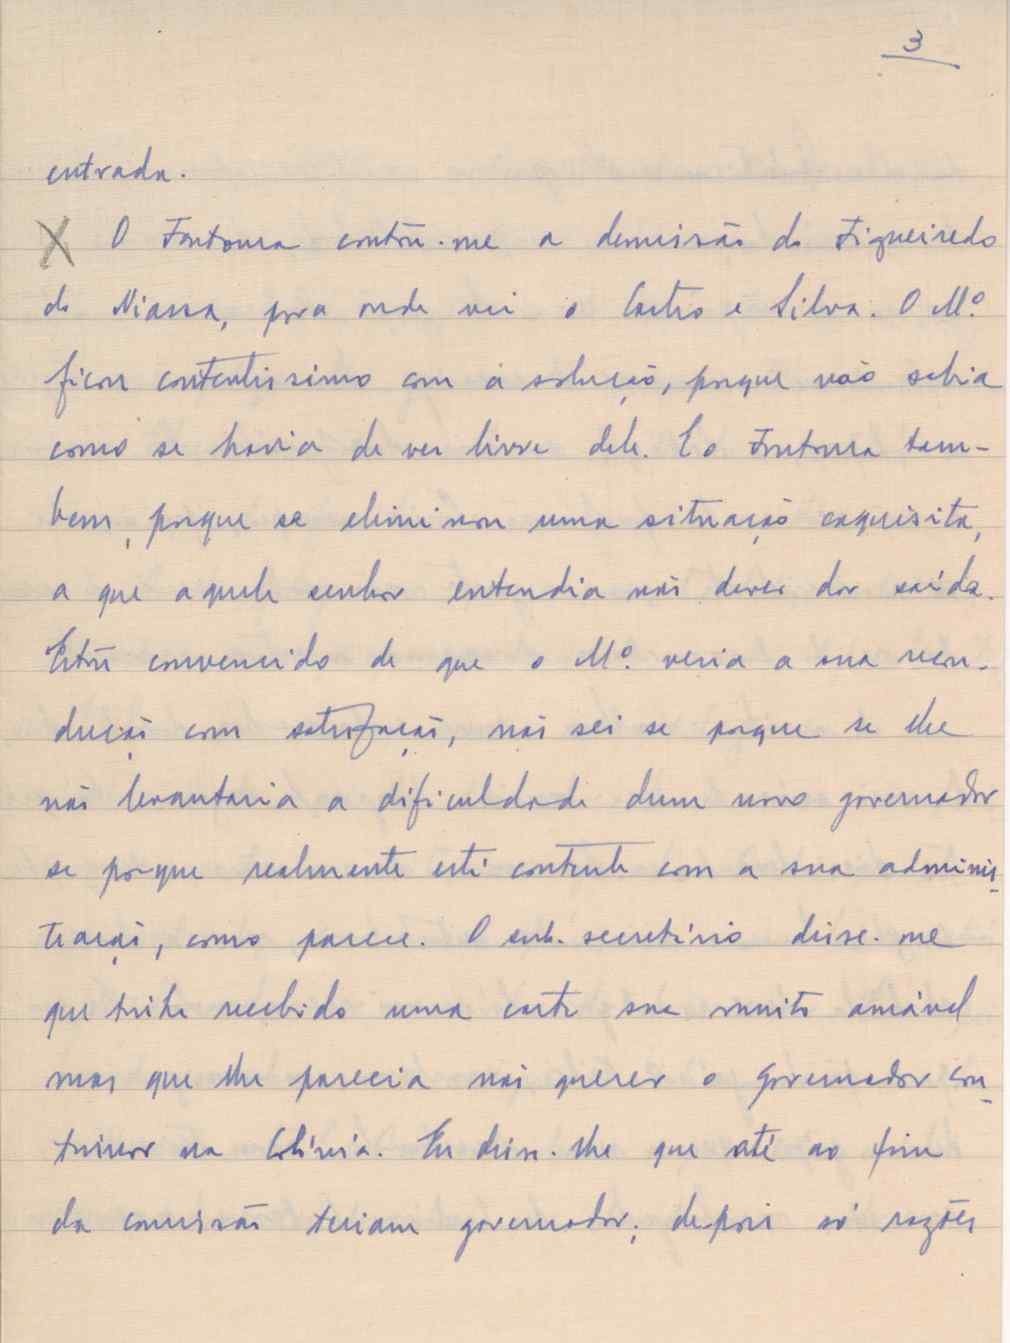 3
entrada.
X O Fontoura contou-me a demissão do Figueiredo
do Niassa, para onde vai o Castro e Silva. O Mº.
ficou contentissimo com a solução, porque não sabia
como se havia de ver livre dele. E o Fontoura tam-
bem, porque se eliminou uma situação esquisita,
a que aquele senhor entendia não dever dar saída.
Estou convencido de que o Mº. veria a sua recon-
dução com satisfação, não sei se porque se lhe
não levantaria a dificuldade dum novo governador
se porque realmente está contente com a sua adminis-
tração, como parece. O sub-secretário disse-me
que tinha recebido uma carta sua muito amável
mas que lhe parecia não querer o governador con-
tinuar na Colónia. Eu disse-lhe que até ao fim
da comissão teriam governador; depois só razões